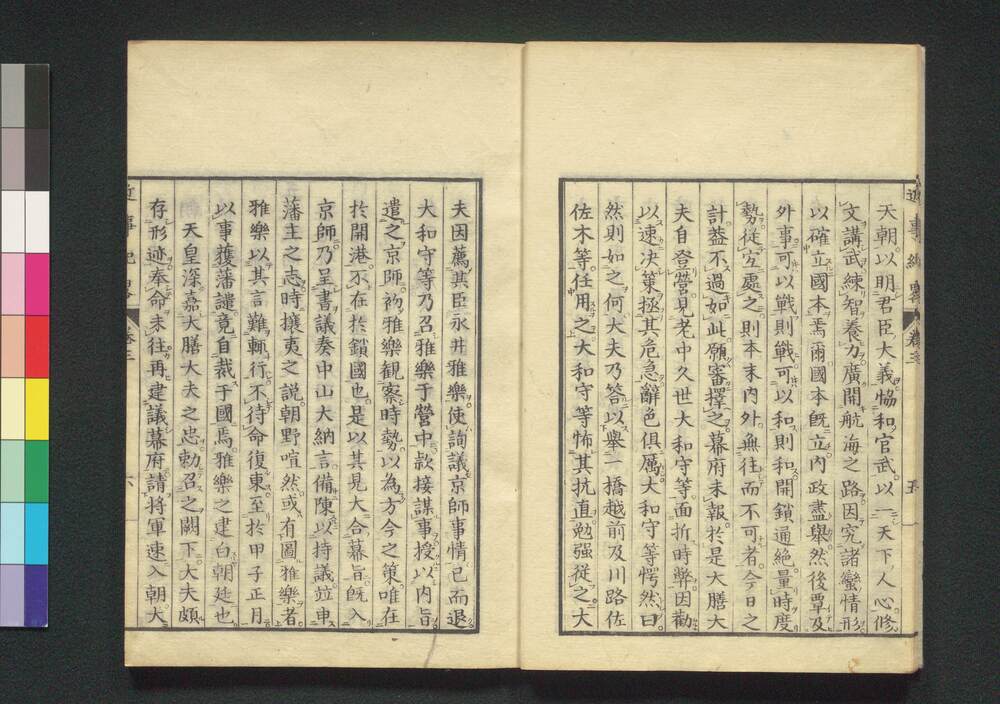 天朝以明君臣大義協和官武以一天下人心修
文講武練智養力廣開航海之路因究諸蠻情形
以確立國本焉爾國本既立内政盡舉然後覃及
外事可以戰則戰可以和則和開鎖通絶量時度
勢從宜處之則本末内外無往而不可者今日之
計蓋不過如此願審擇之幕府未報於是大膳大
夫自登營見老中久世大和守等面折時弊因勸
以速决策拯其危急辭色俱厲大和守等愕然曰
然則如之何大夫乃答以舉一橋越前及川路佐
佐木等任用之大和守等怖其抗直勉强從之大
近事紀畧 卷三 五
夫因薦其臣永井雅樂使詢議京師事情已而退
大和守等乃召雅樂于營中款接謀事授以内旨
遣之京師初雅樂觀察時勢以為方今之策唯在
於開港不在於鎖國也是以其見大合幕旨既入
京師乃呈書議奏中山大納言備陳以持議竝申
藩主之志時攘夷之説朝野喧然或有圖雅樂者
雅樂以其言難輙行不待命復東至於甲子正月
以事獲藩譴竟自裁于國焉雅樂之建白朝廷也
天皇深嘉大膳大夫之忠勅召之闕下大夫頗
存形迹奉命未往再建議幕府請將軍速入朝大
近事紀畧 卷三 六